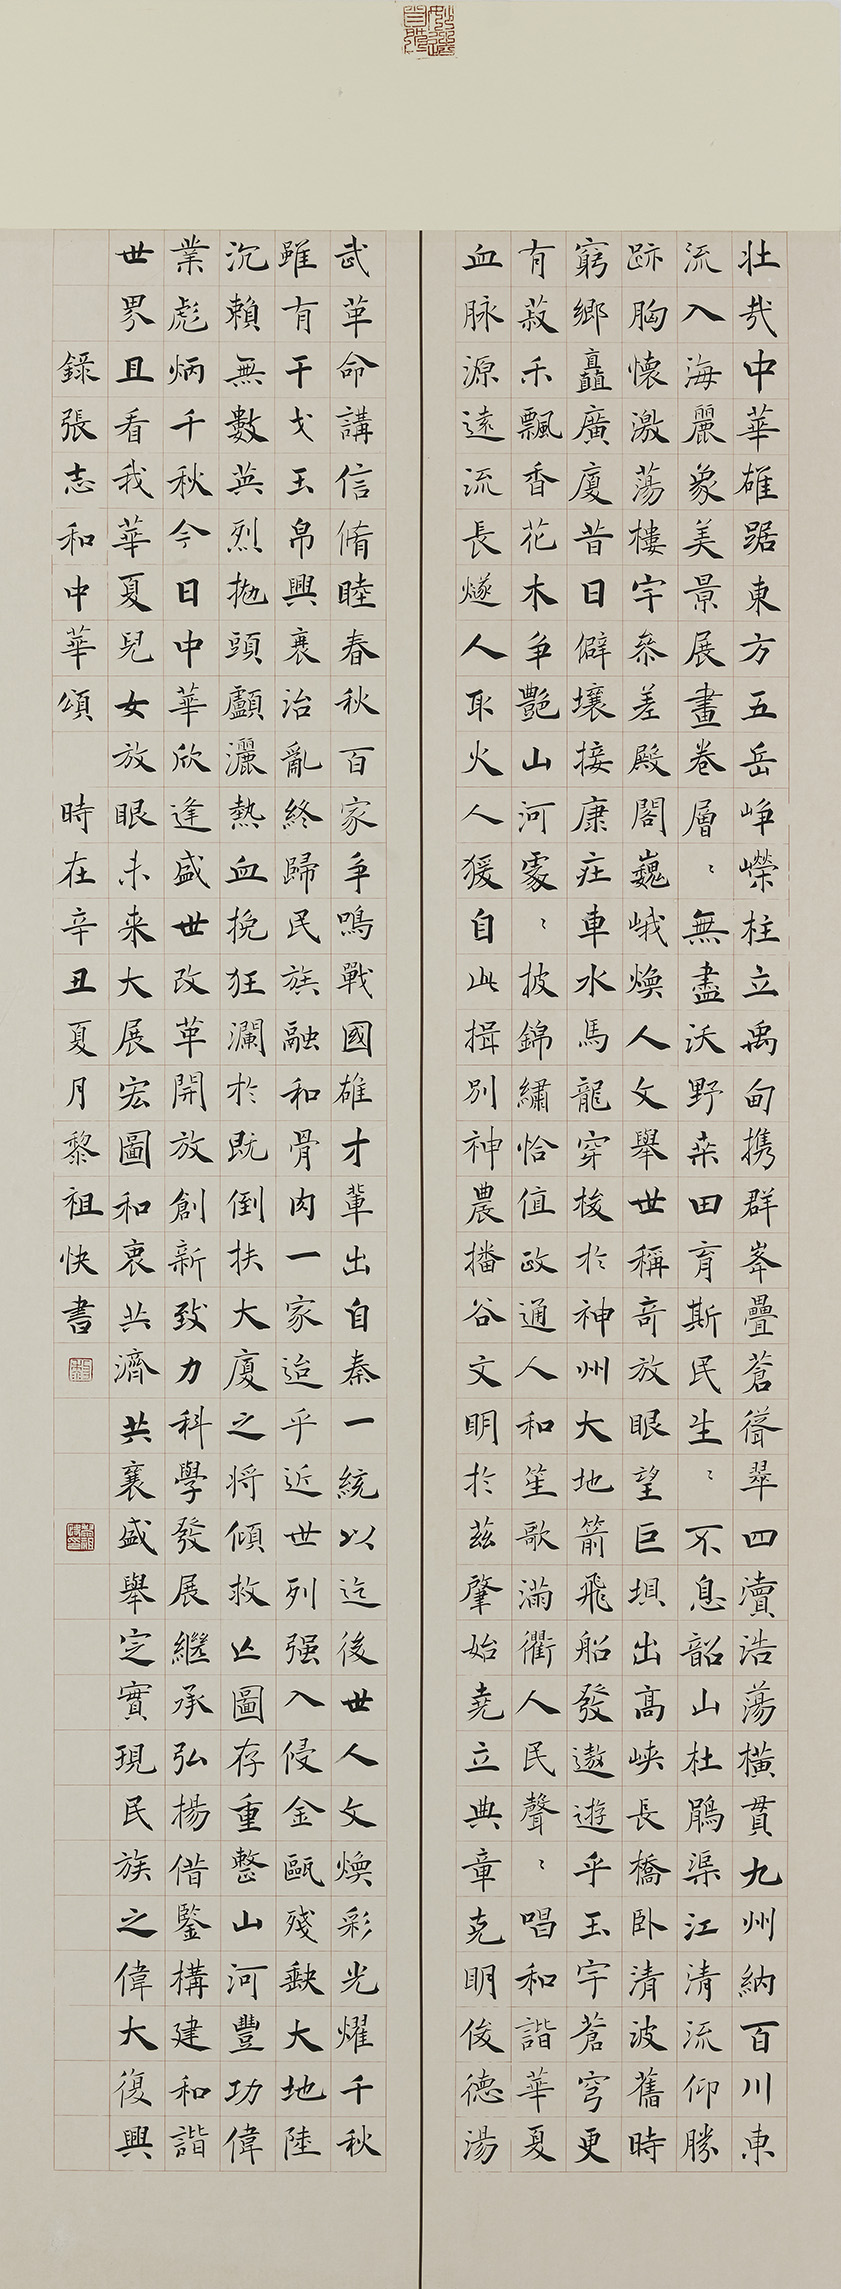 壯哉中華雄踞東方五岳崢嶸柱立禹甸携群峯疊蒼聳翠四瀆浩蕩橫貫九州納百川東
流入海麗象美景展畫卷層〻無盡沃野桒田育斯民生〻不息韶山杜鵑渠江清流仰勝
跡胸懷激蕩樓宇叅差殿閣巍峨煥人文舉世稱奇放眼望巨垻出高峽長橋卧清波舊時
窮鄉矗廣廈昔日僻壤接康莊車水馬龍穿梭於神州大地箭飛船發遨遊乎玉宇蒼穹更
有菽禾飄香花木争艷山河處〻披錦繡恰值政通人和笙歌滿衢人民聲〻唱和諧華夏
血脉源遠流長燧人取火人猨自此揖别神農播谷文明於茲肇始堯立典章克明俊德湯
武革命講信脩睦春秋百家争鳴戰國雄才輩出自秦一統以迄後世人文煥彩光燿千秋
雖有干戈玉帛興衰治亂終歸民族融和骨肉一家迨乎近世列强入侵金甌殘缺大地陸
沉賴無數英烈抛頭顱灑熱血挽狂瀾於既倒扶大廈之将傾救亡圖存重整山河豐功偉
業彪炳千秋今日中華欣逢盛世改革開放創新致力科學發展繼承弘揚借鑒構建和諧
世界且看我華夏兒女放眼未来大展宏圖和衷共濟共襄盛舉定實現民族之偉大復興
錄張志和中華頌 時在辛丑夏月黎祖快書